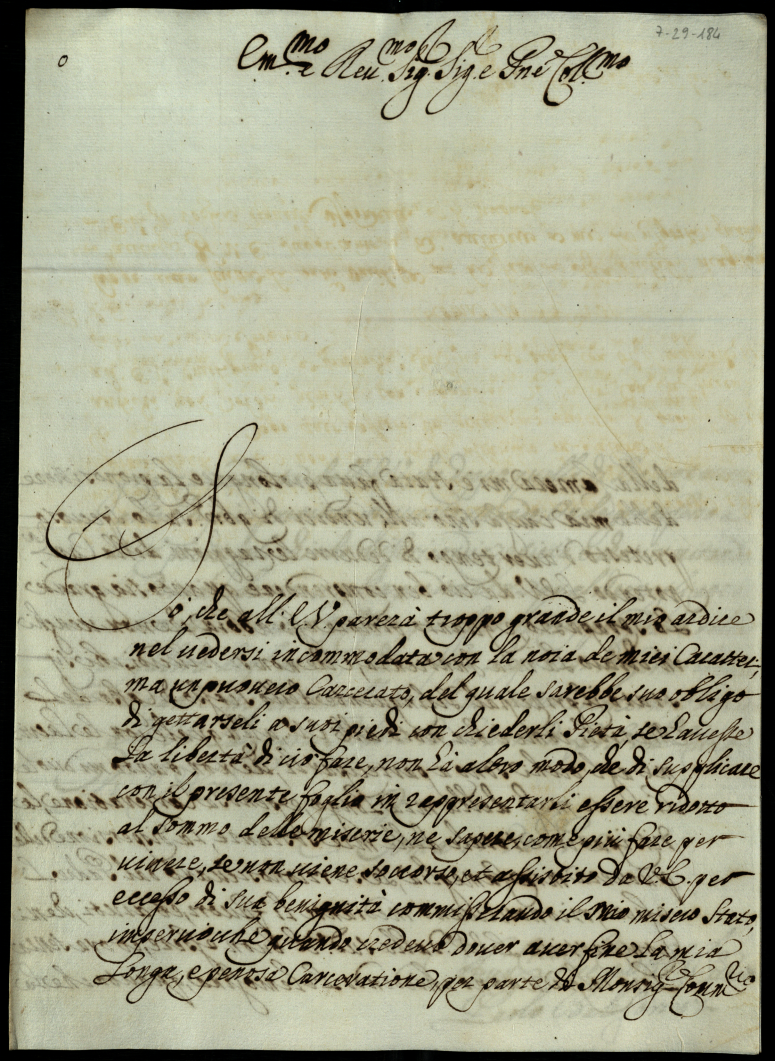 7-29-184
Em.mo e Reu.mo Sig.r Sig.e Pne Coll.mo
Sò, che all' E.V. parerà troppo grande il mio ardire
nel uedersi incommodata con la noia de miei Caratteri,
ma un pouero Carcerato, del quale sarebbe suo obligo
di gettarseli a suoi piedi con chiederli Pietà, se hauesse
la libertà di ciò fare, non hà altro modo, che di supplicare
con il presente foglio in rappresentarli essere ridotto
al sommo delle miserie, ne sapere, come più fare per
uiuere, se non uiene soccorso, et assistito da V.E. per
eccesso di sua benignità commiserando il mio misero stato,
imperuoche quando credeuo douer auer fine la mia
longa, e penosa Carceratione, per parte di Monsig.r Comm.rio